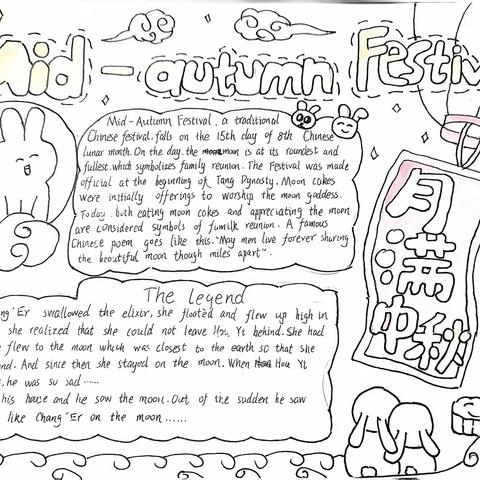 Mid-autumn Festiv
Mid-Autumn Festival, a traditional
Chinese festival, falls on the 15th day of 8th Chinese
lunar month. On the day, the moon is at its roundest and
fullest, which symbolizes family reunion. The Festival was made
official at the beginning of Tang Dynasty. Moon cakes
were initially offerings to worship the moon goddess.
Today, both eating moon cakes and appreciating the moon
are considered symbols of fumilk reunion. A famous
Chinese poem goes like this, "May men live forever sharing
the beautiful moon though miles apart".
月
满
中秋
The legend
ng'Er swallowed the elixir, she floated and flew up high in
she realized that she could not leave Hou Yi behind. She had
flew to the moon which was closest to the earth so that she
nd. And since then she stayed on the moon. When Hou Yi
, he was so sad ......
his house and he saw the moon. Out of the sudden he saw
like Chang'Er on the moon ......